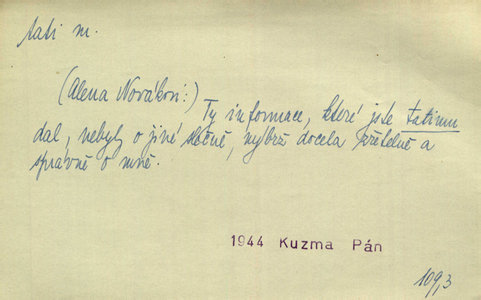 tati m.
(Alena Nováková:)
Ty informace, které jste tatimu
dal, nebyly o jiné slečně, nýbrž docela zřetelně a
správně o mně.
1944 Kuzma Pán
109,3